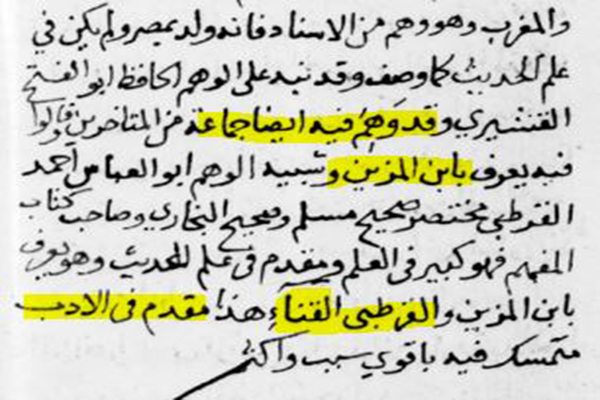 والمغرب وهو وهم من الاستاد فانه ولد بمصر ولم يكن في
علم الحديث كما وصف وقد نبه على الوهم الحافظ ابو الفتح
القشيري وقد وَهِمَ فيه ايضا جماعة من المتاخرين وقالوا
فيه يعرف بابن المزين وسبب الوهم ابو العباس احمد
القرطبي مختصر صحيح مسلم وصحيح البخاري وصاحب كتاب
المفهم فهو كبير في العلم ومتقدم في علم الحديث وهو يعرف
بابن المزين والقرطبي القناء هذا مقدم في الادب
متمسك فيه باقوي سبب واكثر